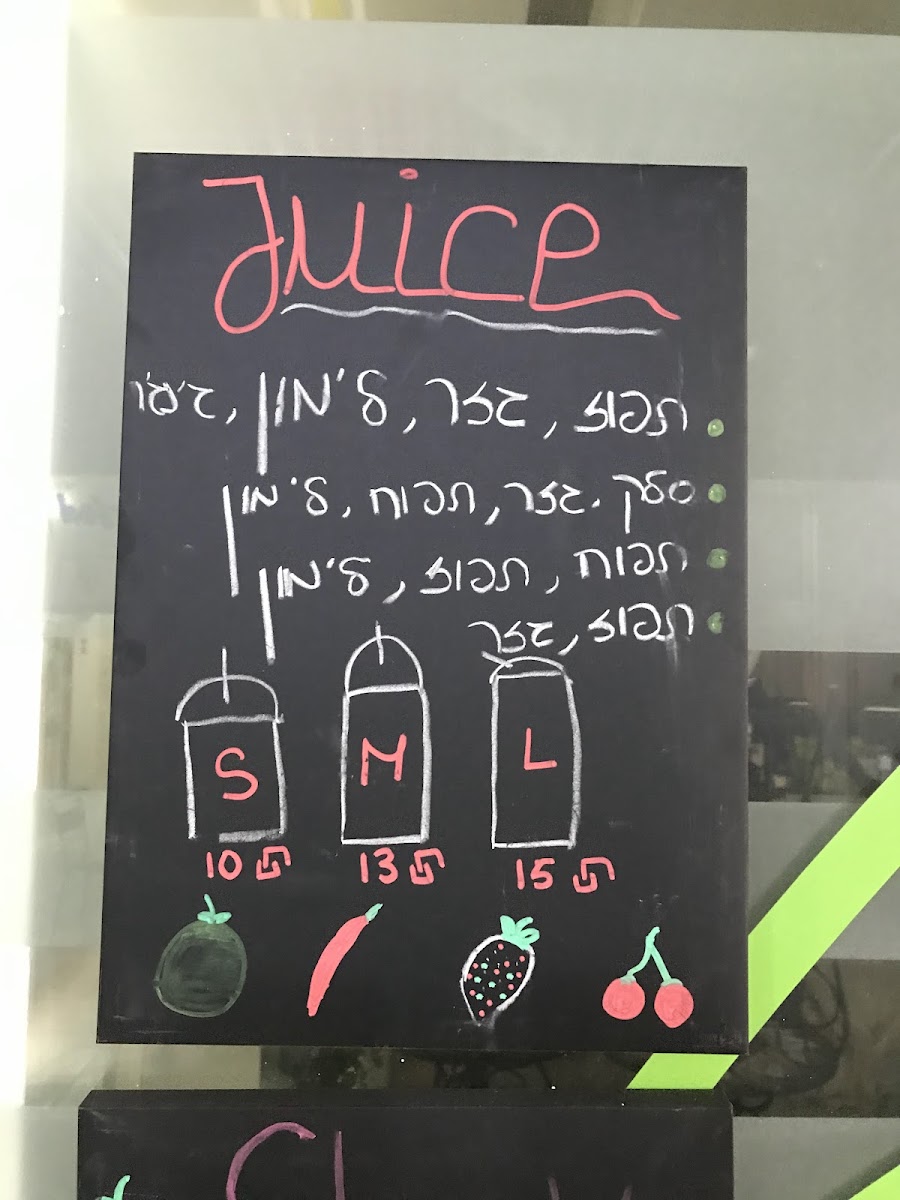 Juice
תפוז, גזר, לימון, ג'ינג'ר
סלק, גזר, תפוח, לימון
תפוח, תפוז, לימון
תפוז, גזר
S M L
10 ₪ 13 ₪ 15 ₪